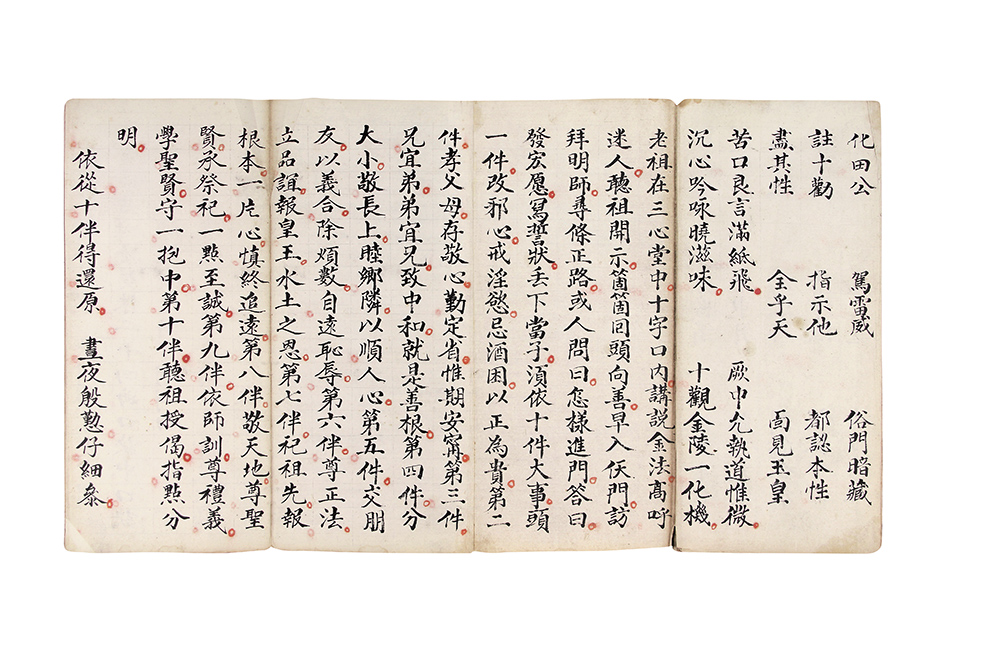 化田公　駕雷威　俗門暗藏
註十勸　指示他　都認本性
盡其性　全乎天　面見玉皇
苦口良言滿紙飛　厥中允執道惟微
沉心吟咏曉滋味　十觀金陵一化機
老祖在三心堂中十字口內講説金法高呼
迷人聽祖開示箇箇回頭向善早入佛門訪
拜明師尋條正路或人問曰怎樣進門答曰
發宏愿寫誓狀丢下當子須依十件大事頭
一件改邪心戒淫慾忌酒困以正為貴第二
件孝父母存敬心勤定省惟期安甯第三件
兄宜弟弟宜兄致中和就是善根第四件分
大小敬長上睦鄉隣以順人心第五件交朋
友以義合除煩數自遠恥辱第六件尊正法
立品誼報皇王水土之恩第七件祀祖先報
根本一片心慎終追遠第八件敬天地尊聖
賢承祭祀一點至誠第九件依師訓尊禮義
學聖賢守一抱中第十件聽祖授偈指點分
明
依從十件得還原　晝夜殷懃仔細叅